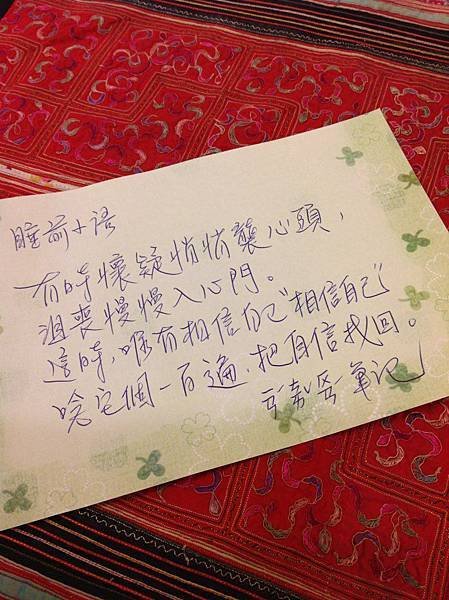 睡前小語
有時懷疑悄悄襲心頭，
沮喪慢慢入心門。
這時，唯有相信自己"相信自己"
唸它個一百遍，把自信找回。
筆記